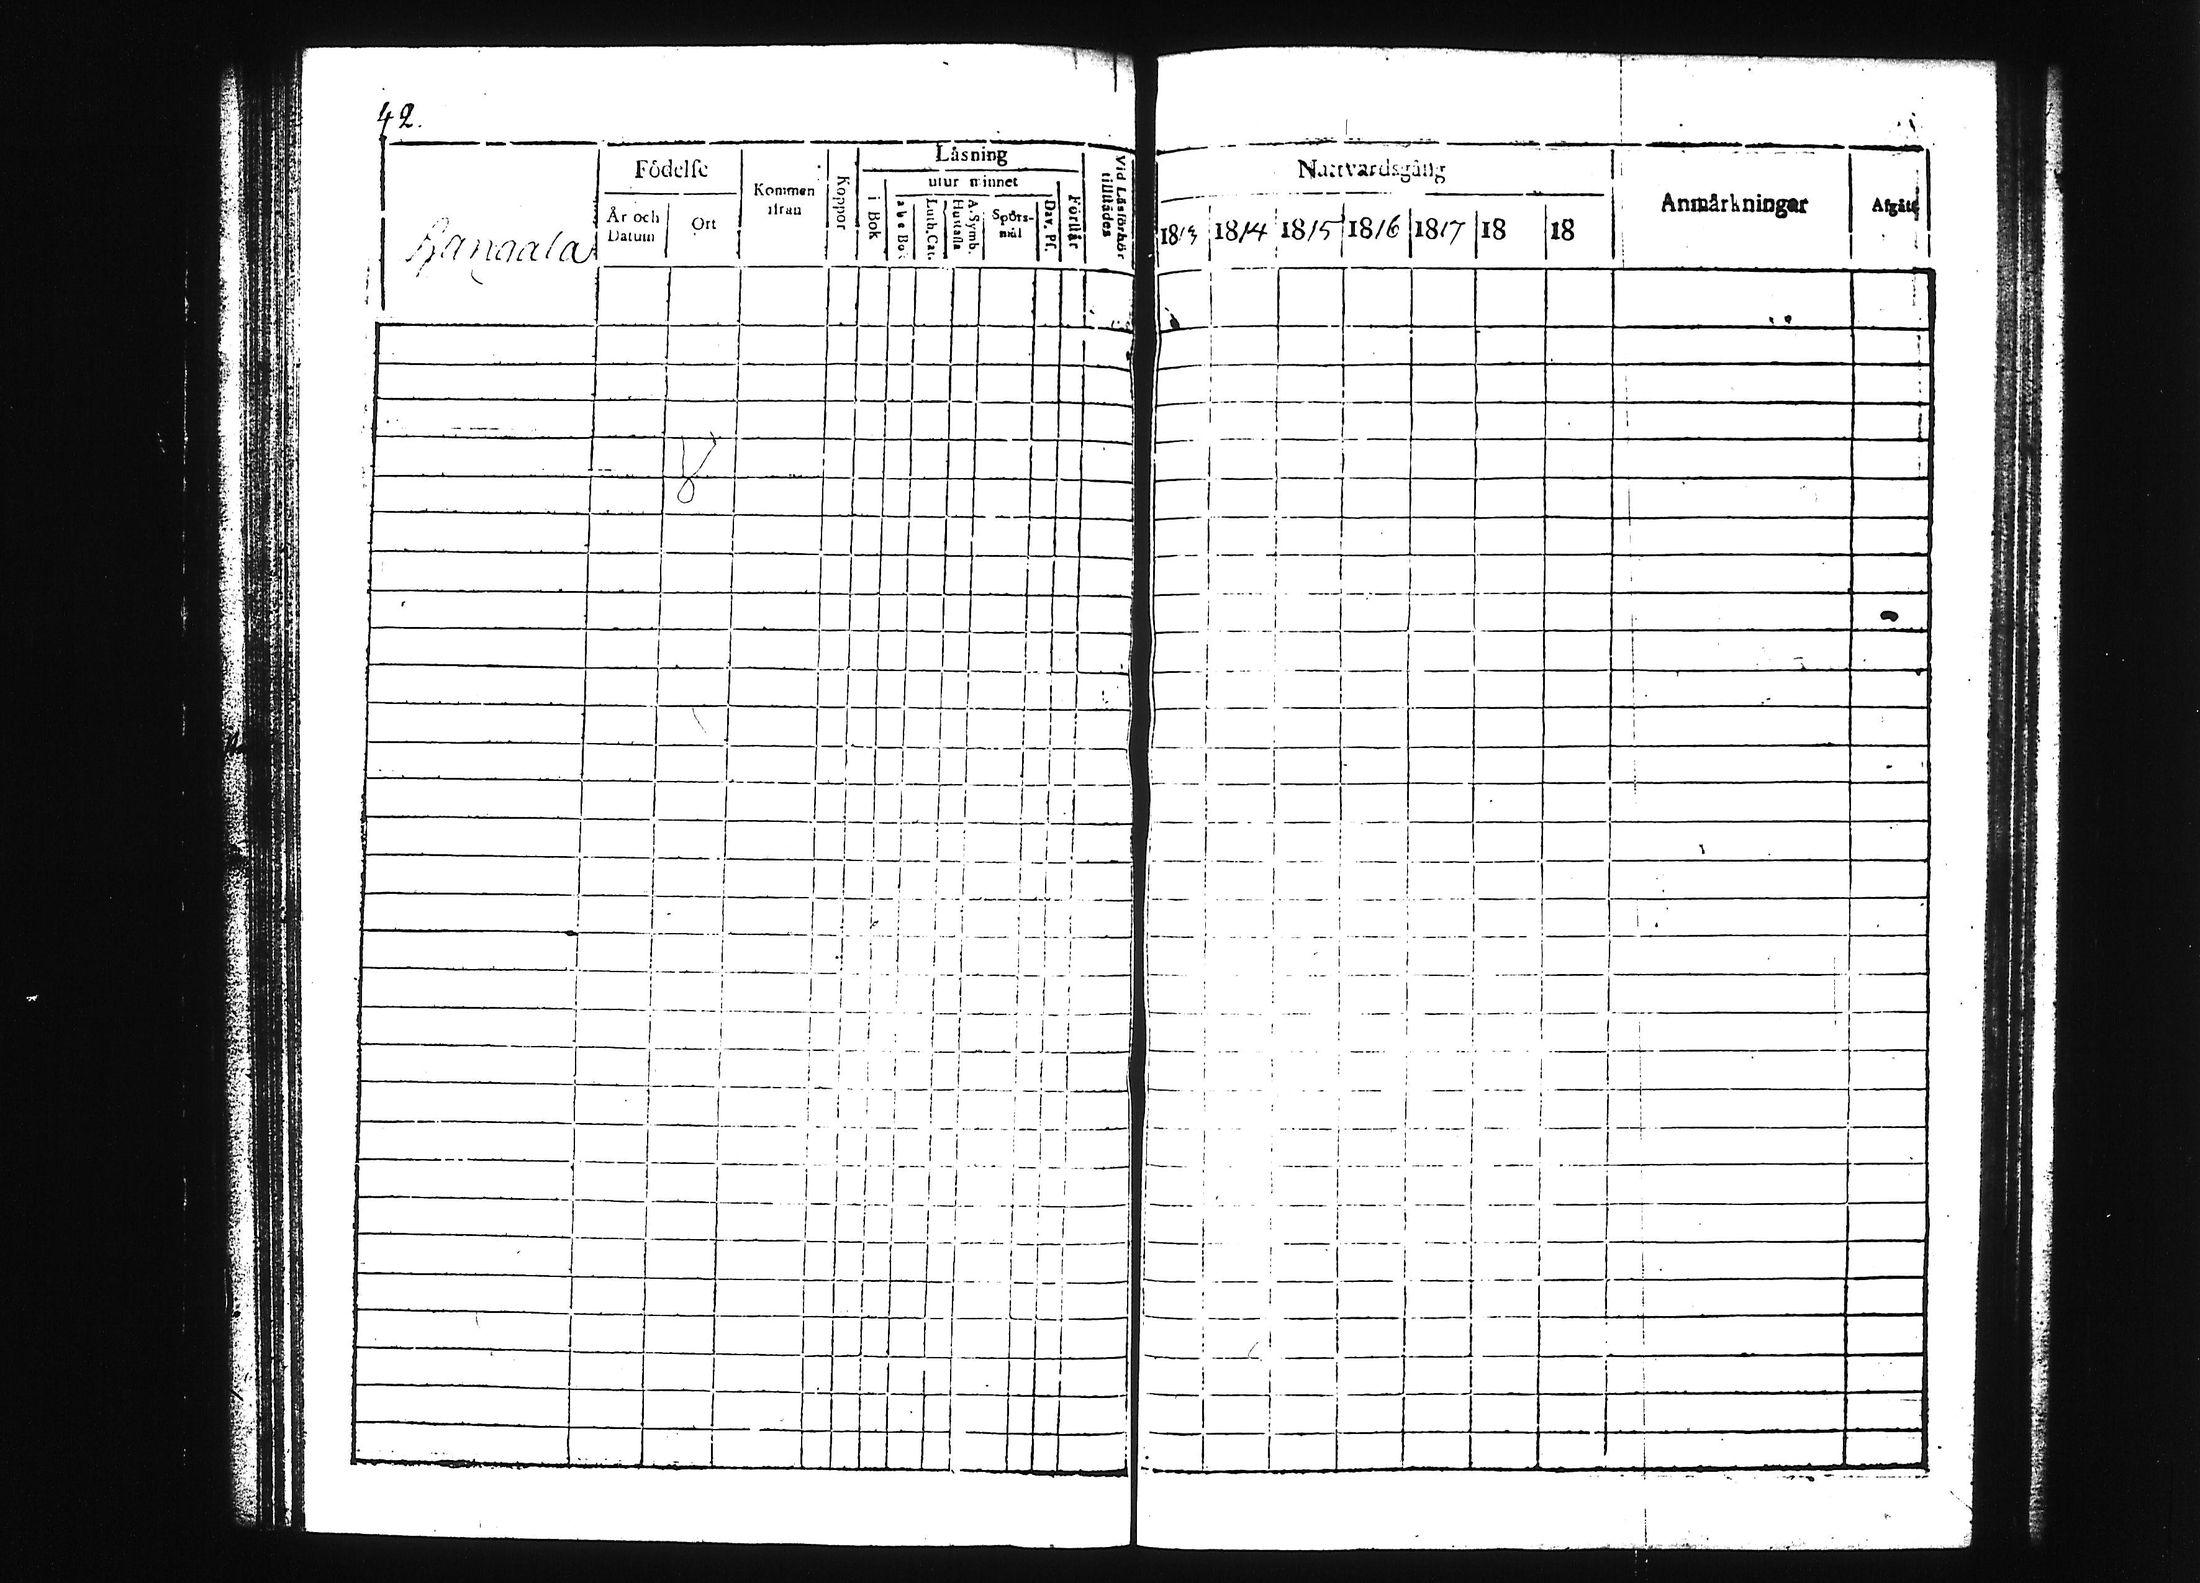 42.
Kangala
Födelse
År och Datum
Ort
Kommen ifrån
Koppor
Läsning
i Bok
utur minnet
Abc Bok
Luth. Cat.
Hustafla
A. Symb.
Spörs-mål
Dav. Ps.
Förstår
Vid Läsförhör tillstädes
Nattvardsgång
1813 1814 1815 1816 1817 18 18
Anmärkningar
Afgått